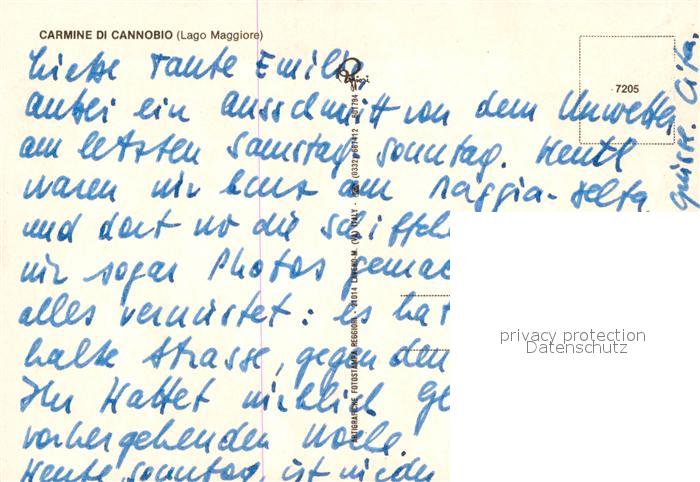 CARMINE DI CANNOBIO (Lago Maggiore)
7205
Liebe Tante Emilie,
anbei ein Ausschnitt von dem Unwetter
am letzten Samstag, Sonntag. Heute
waren wir kurz am Maggia-Delta
und dort wo die Schiffch
wir sogar Photos gemac
alles verwüstet: es hat
halbe Strasse, gegen den
Ihr hattet wirklich Gl
vorhergehenden Woche.
Heute, Sonntag, ist wieder
Grüsse. Cita.
ARTIGRAFICHE FOTOSTAMPA REGGIORI - 21014 LAVENO-M. (VA) ITALY - (0332) 667412
privacy protection
Datenschutz